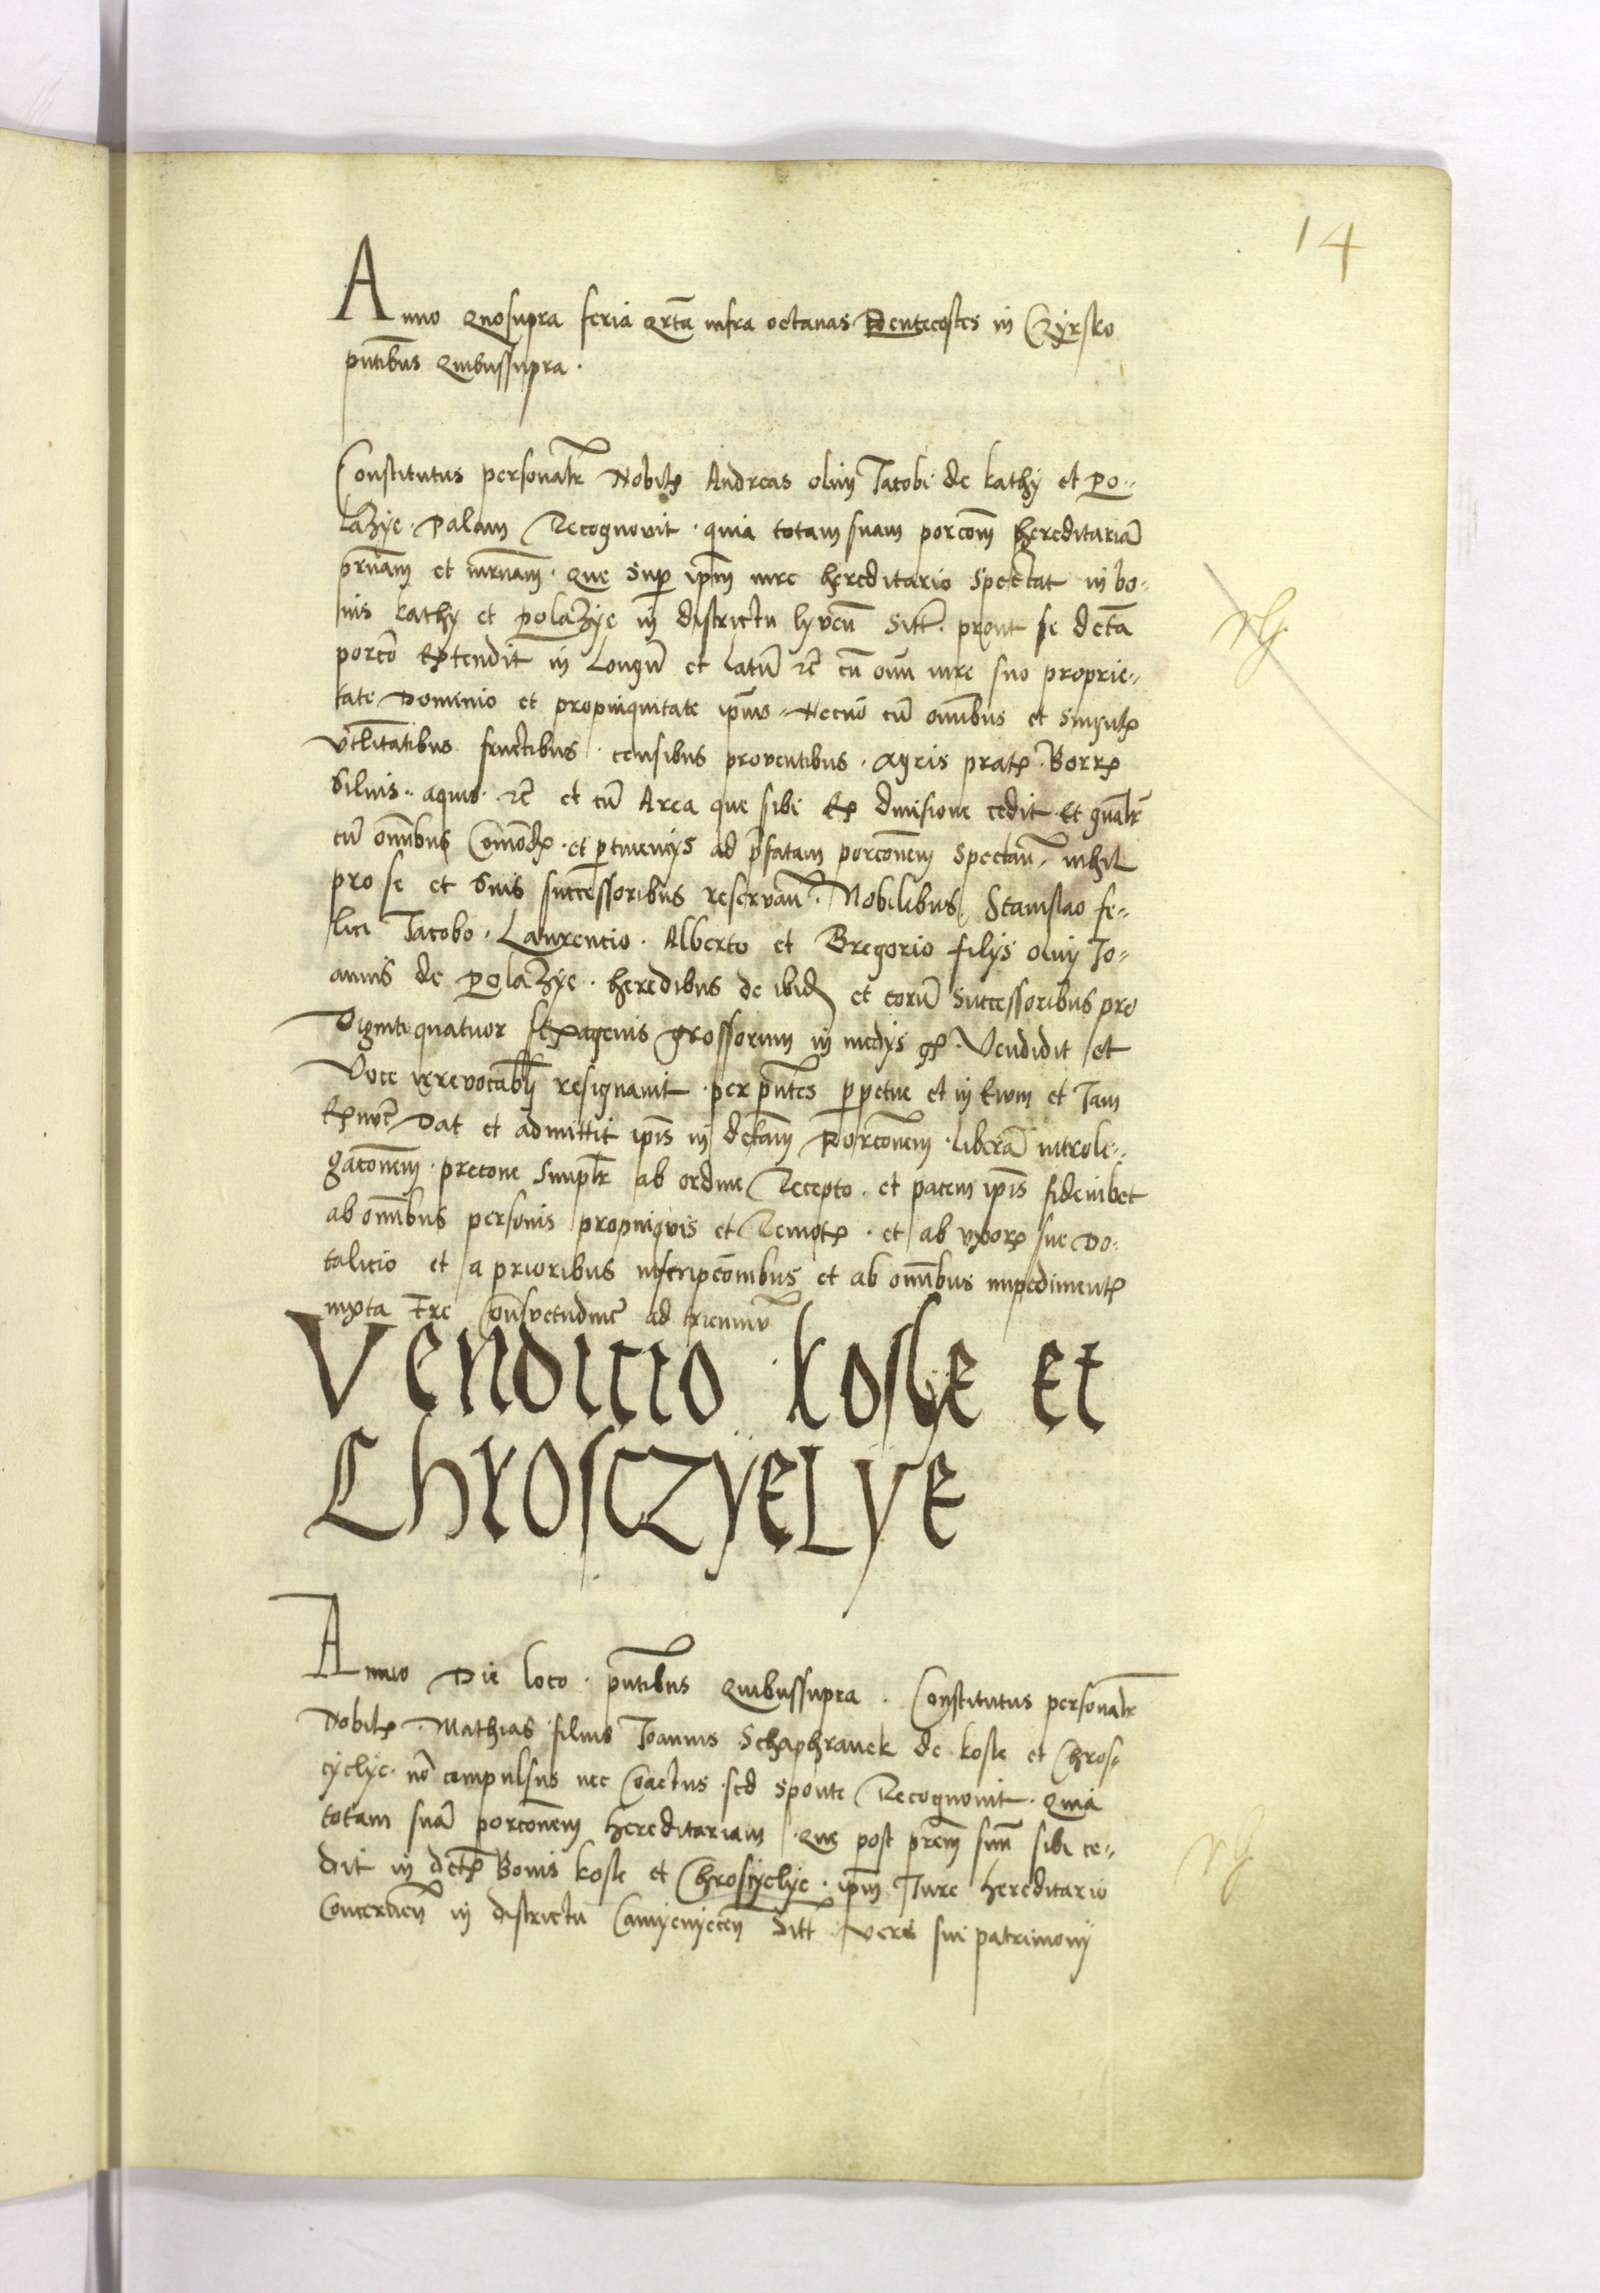 14
Anno Quosupra feria Qrta infra octauas Pentecostes in Czyrsko
pntibus Quibussupra .
Constitutus personalr Nobilis Andreas olim Jacobi de kathy et Po-
lazye . Palam Recognouit . quia totam suam porcom hereditariā
prnam et mrnam . que Sup ipm iure hereditario Spectat in bo-
nis kathy et polazye in districtu lyvcen Sitt . prout se dcta
porco Extendit in Longū et latū etc cū oim iure suo proprie-
tate Dominio et propinquitate ipius . Necnō cū omībus et Singulis
vtilitatibus fructibus . censibus proventibus . Agris pratis . Borris
Siluis . aquis . etc et cū Area que sibi Ex diuisione cedit . Et gnalr
cū omībus Comodis . et ptinencijs ad pfatam porconem Spectan . nihil
pro se et Suis successoribus reseruan . Nobilibus Stanislao fe-
lici Jacobo . Laurencio . Alberto et Gregorio filijs olim Jo-
annis de Polazye . heredibus de ibid et eorū Successoribus pro
Viginti quatuor sexagenis grossorum in medijs gs . Vendidit et
Voce irreuocabli resignauit . per pntes ppetue et in Euum et Jam
Exnūc Dat et admittit ipis in dctam Porconem . liberā introle-
gaconem . precone Simplr ab ordine Recepto . et pacem ipis fideiubet
ab omībus personis propinquis et Remotis . et ab vxoris sue Do-
talicio et a prioribus inscripconibus et ab omībus impedimentis
iuxta Tre Consuetudinē ad trienniū
Vendicio kosle et
Chrosczyelye
Anno Die loco . pntibus Quibussupra . Constitutus personalr
Nobilis . Mathias filius Joannis Schaphranek de kosle et Chros-
cyelye . nō compulsus nec Coactus . sed sponte Recognouit . Quia
totam suā porconem hereditariam . Que post prem suū sibi ce-
dit in dctis Bonis kosle et Chroscyelye . ipm Jure hereditario
Concernen in districtu Camyenyecen Sitt . veri sui patrimonij